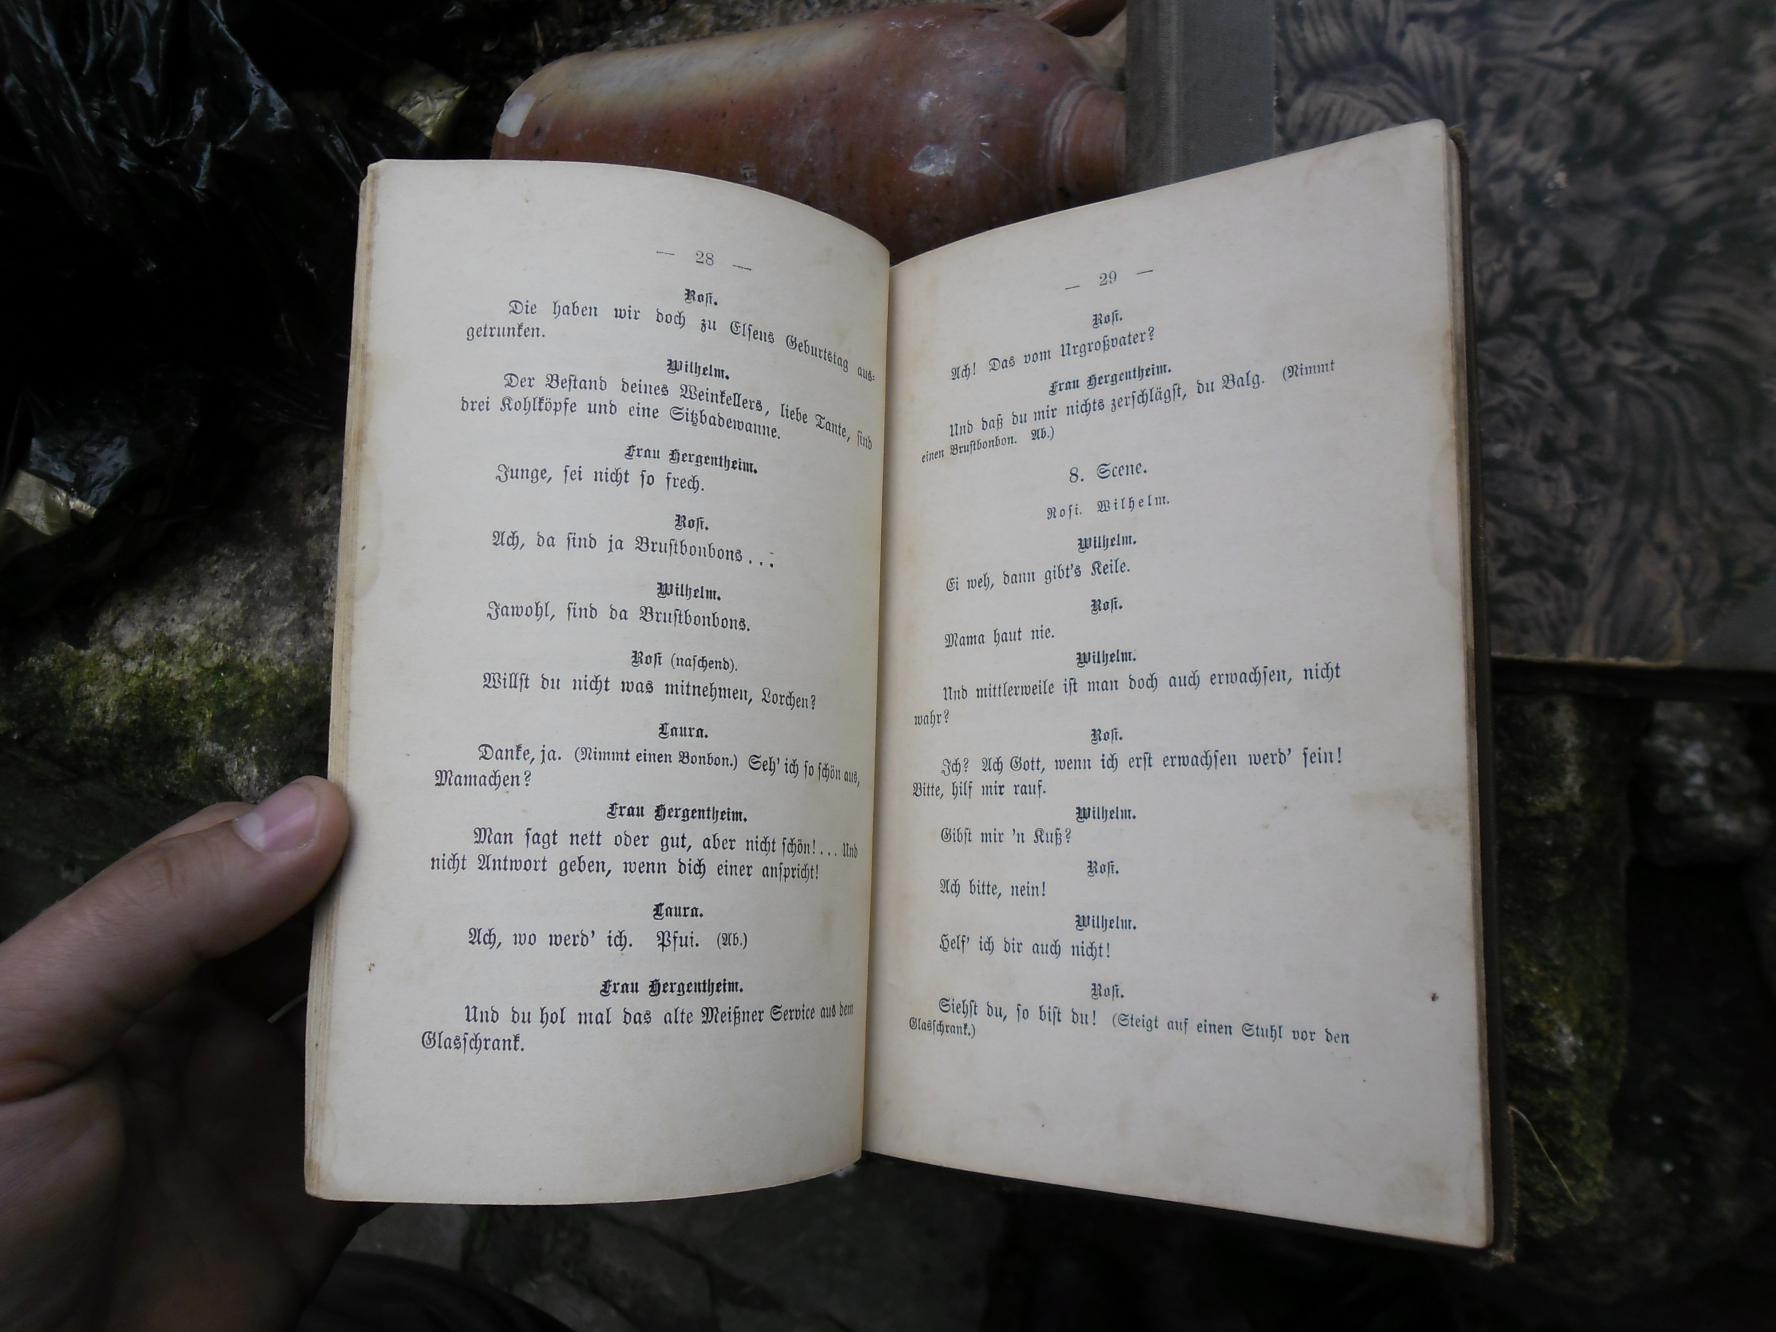 — 28 —
Rosi.
Die haben wir doch zu Elsens Geburtstag aus-
getrunken.
Wilhelm.
Der Bestand deines Weinkellers, liebe Tante, sind
drei Kohlköpfe und eine Sitzbadewanne.
Frau Hergentheim.
Junge, sei nicht so frech.
Rosi.
Ach, da sind ja Brustbonbons ...
Wilhelm.
Jawohl, sind da Brustbonbons.
Rosi (naschend).
Willst du nicht was mitnehmen, Lorchen?
Laura.
Danke, ja. (Nimmt einen Bonbon.) Seh' ich so schön aus,
Mamachen?
Frau Hergentheim.
Man sagt nett oder gut, aber nicht schön! ... Und
nicht Antwort geben, wenn dich einer anspricht!
Laura.
Ach, wo werd' ich. Pfui. (Ab.)
Frau Hergentheim.
Und du hol mal das alte Meißner Service aus dem
Glasschrank.
— 29 —
Rosi.
Ach! Das vom Urgroßvater?
Frau Hergentheim.
Und daß du mir nichts zerschlägst, du Balg. (Nimmt
einen Brustbonbon. Ab.)
8. Scene.
Rosi. Wilhelm.
Wilhelm.
Ei weh, dann gibt's Keile.
Rosi.
Mama haut nie.
Wilhelm.
Und mittlerweile ist man doch auch erwachsen, nicht
wahr?
Rosi.
Ich? Ach Gott, wenn ich erst erwachsen werd' sein!
Bitte, hilf mir rauf.
Wilhelm.
Gibst mir 'n Kuß?
Rosi.
Ach bitte, nein!
Wilhelm.
Helf' ich dir auch nicht!
Rosi.
Siehst du, so bist du! (Steigt auf einen Stuhl vor den
Glasschrank.)